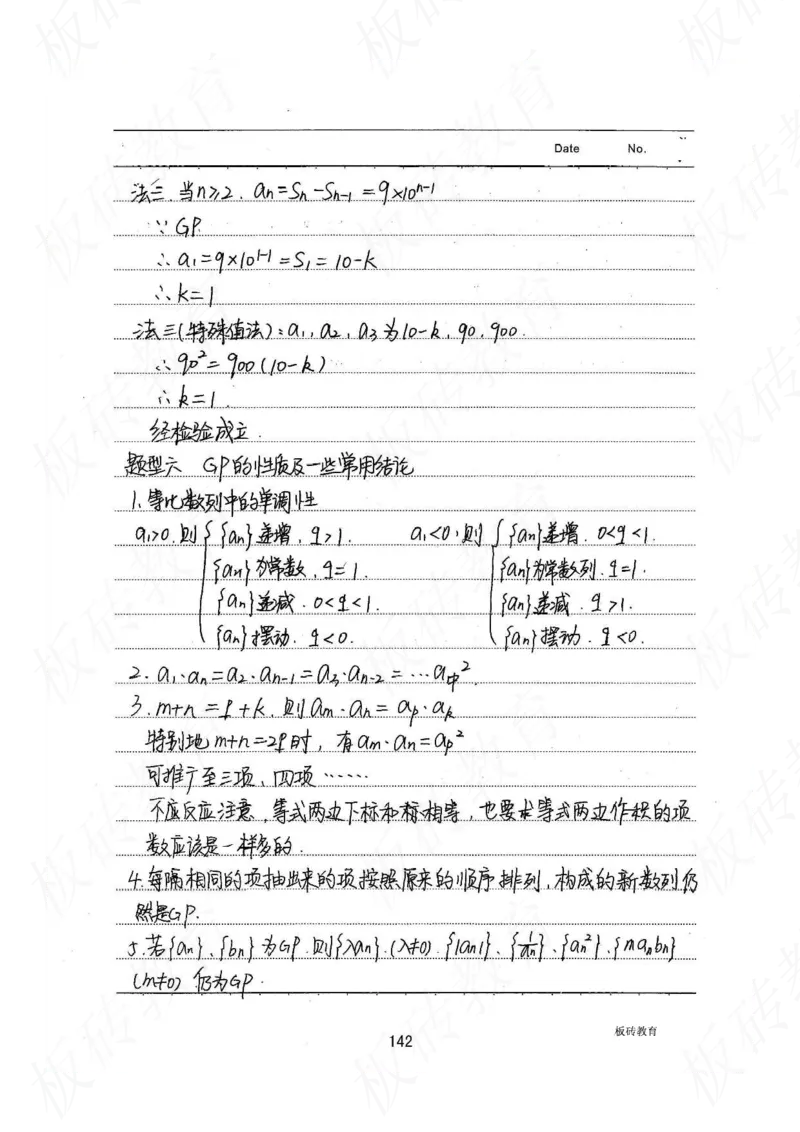 Date No.
法三.当n≥2. an=Sn-Sn-1=9×10ⁿ⁻¹
∵GP.
∴a1=9×10¹⁻¹=S1=10-k
∴k=1
法三(特殊值法):a1,a2,a3为10-k,90,900.
∴90²=900(10-k)
∴k=1.
经检验成立.
题型六 GP的性质及一些常用结论
1.等比数列中的单调性
a1>0.则{ {an}递增,q>1. a1<0,则{ {an}递增.0<q<1.
{an}为常数,q=1. {an}为常数列.q=1.
{an}递减.0<q<1. {an}递减.q>1.
{an}摆动.q<0. {an}摆动.q<0.
2.a1·an=a2·an-1=a3·an-2=…a中².
3.m+n=p+k.则am·an=ap·ak
特别地m+n=2p时,有am·an=ap²
可推广至三项、四项……
不应反应注意,等式两边下标和相等,也要求等式两边作积的项
数应该是一样多的.
4.每隔相同的项抽出来的项按照原来的顺序排列,构成的新数列仍
然是GP.
5.若{an}、{bn}为GP.则{λan}.(λ≠0).{|an|}、{1/an}、{an²}、{manbn}
(m≠0)仍为GP.
142
板砖教育